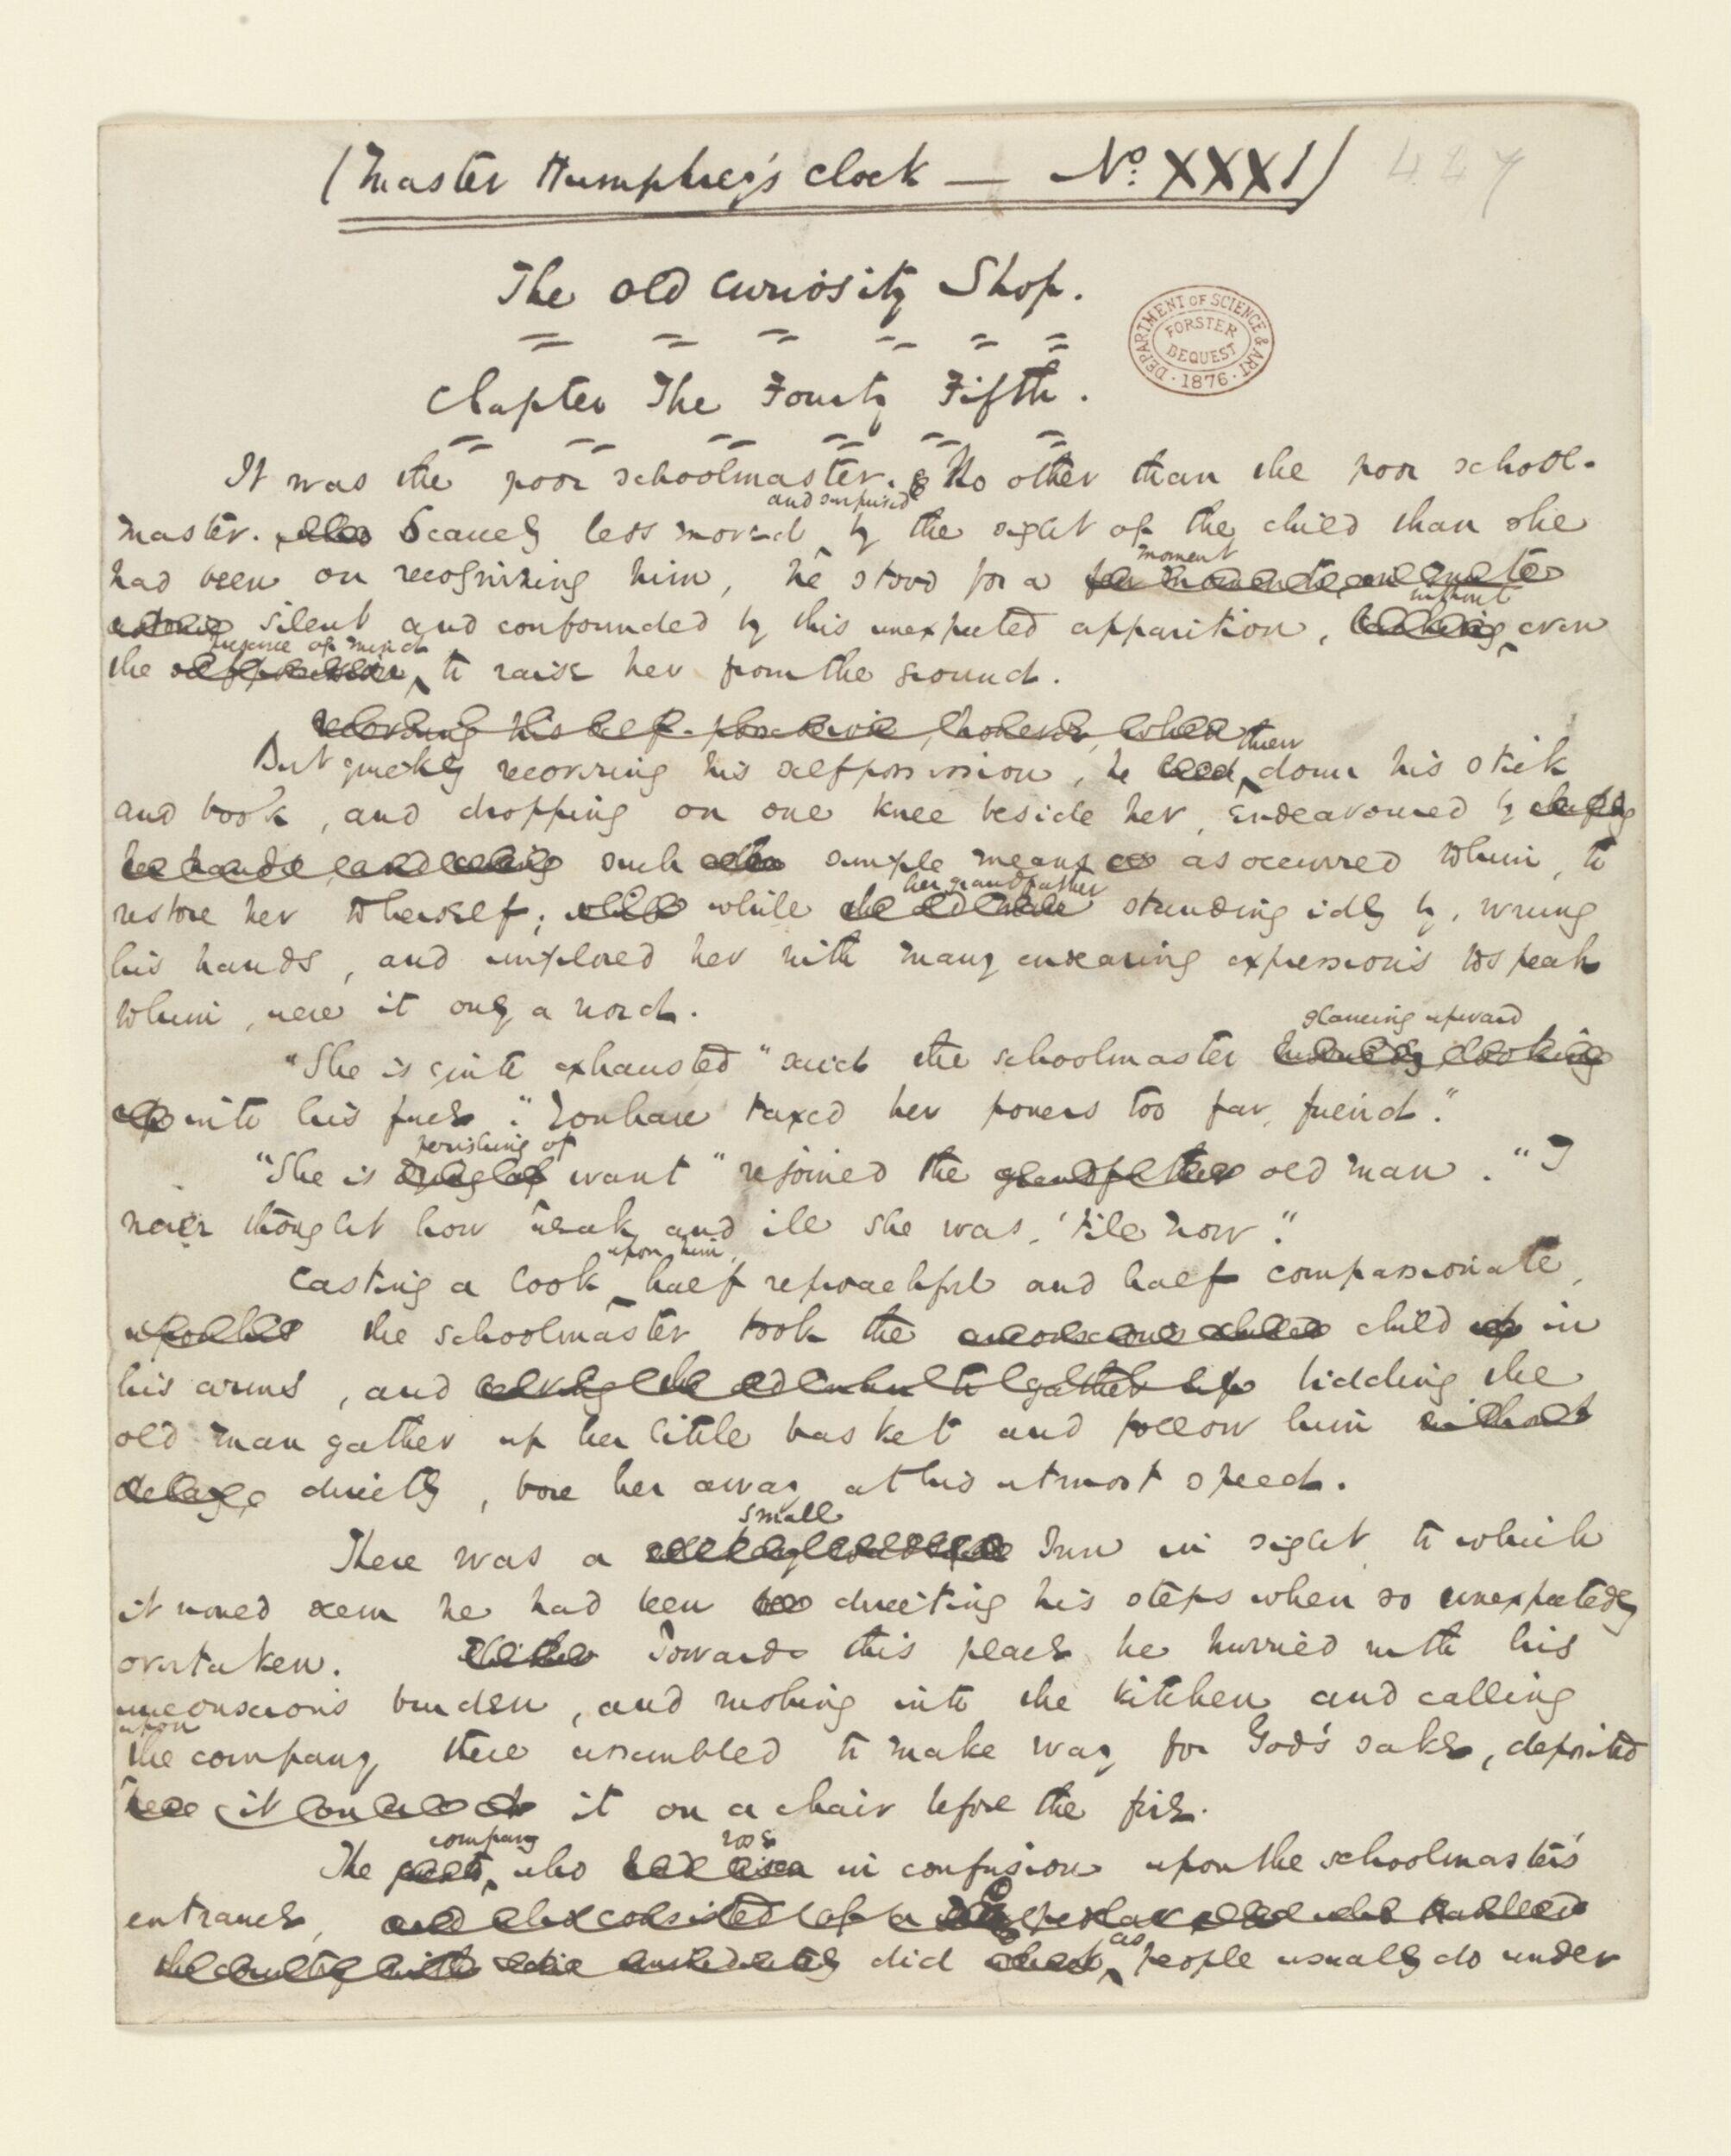 (Master Humphrey's Clock — No. XXXI)
427
The Old Curiosity Shop.
DEPARTMENT OF SCIENCE & ART
FORSTER
BEQUEST
1876
Chapter The Fourty Fifth.
It was the poor schoolmaster. No other than the poor school-
and surprised
master. Scarcely less moved by the sight of the child than she
moment
had been on recognizing him, he stood for a few moments
without
silent and confounded by this unexpected apparition, even
presence of mind
the self possession to raise her from the ground.
recovering his self-possession, however, when
then
But quickly recovering his selfpossession, he down his stick
and book, and dropping on one knee beside her, endeavoured by
her hands, and such simple means as occurred to him, to
her grandfather
restore her to herself; while the old man standing idly by, wrung
his hands, and implored her with many endearing expressions to speak
to him, were it only a word.
glancing upward
"She is quite exhausted" said the schoolmaster looking
up into his face. "You have taxed her powers too far, friend."
perishing of
"She is dying of want" rejoined the grandfather old man. "I
never thought how weak and ill she was, 'till now."
upon him,
Casting a look half reproachful and half compassionate,
upon his the schoolmaster took the unconscious child child up in
his arms, and asking the old man to gather up bidding the
old man gather up her little basket and follow him without
delay directly, bore her away at his utmost speed.
small
There was a Inn in sight to which
it would seem he had been directing his steps when so unexpectedly
overtaken. Towards this place he hurried with his
unconscious burden, and rushing into the kitchen and calling
upon
the company there assembled to make way for God's sake, deposited
it on a chair before the fire.
company
rose
The guests, who had risen in confusion upon the schoolmaster's
entrance, and
as
did people usually do under